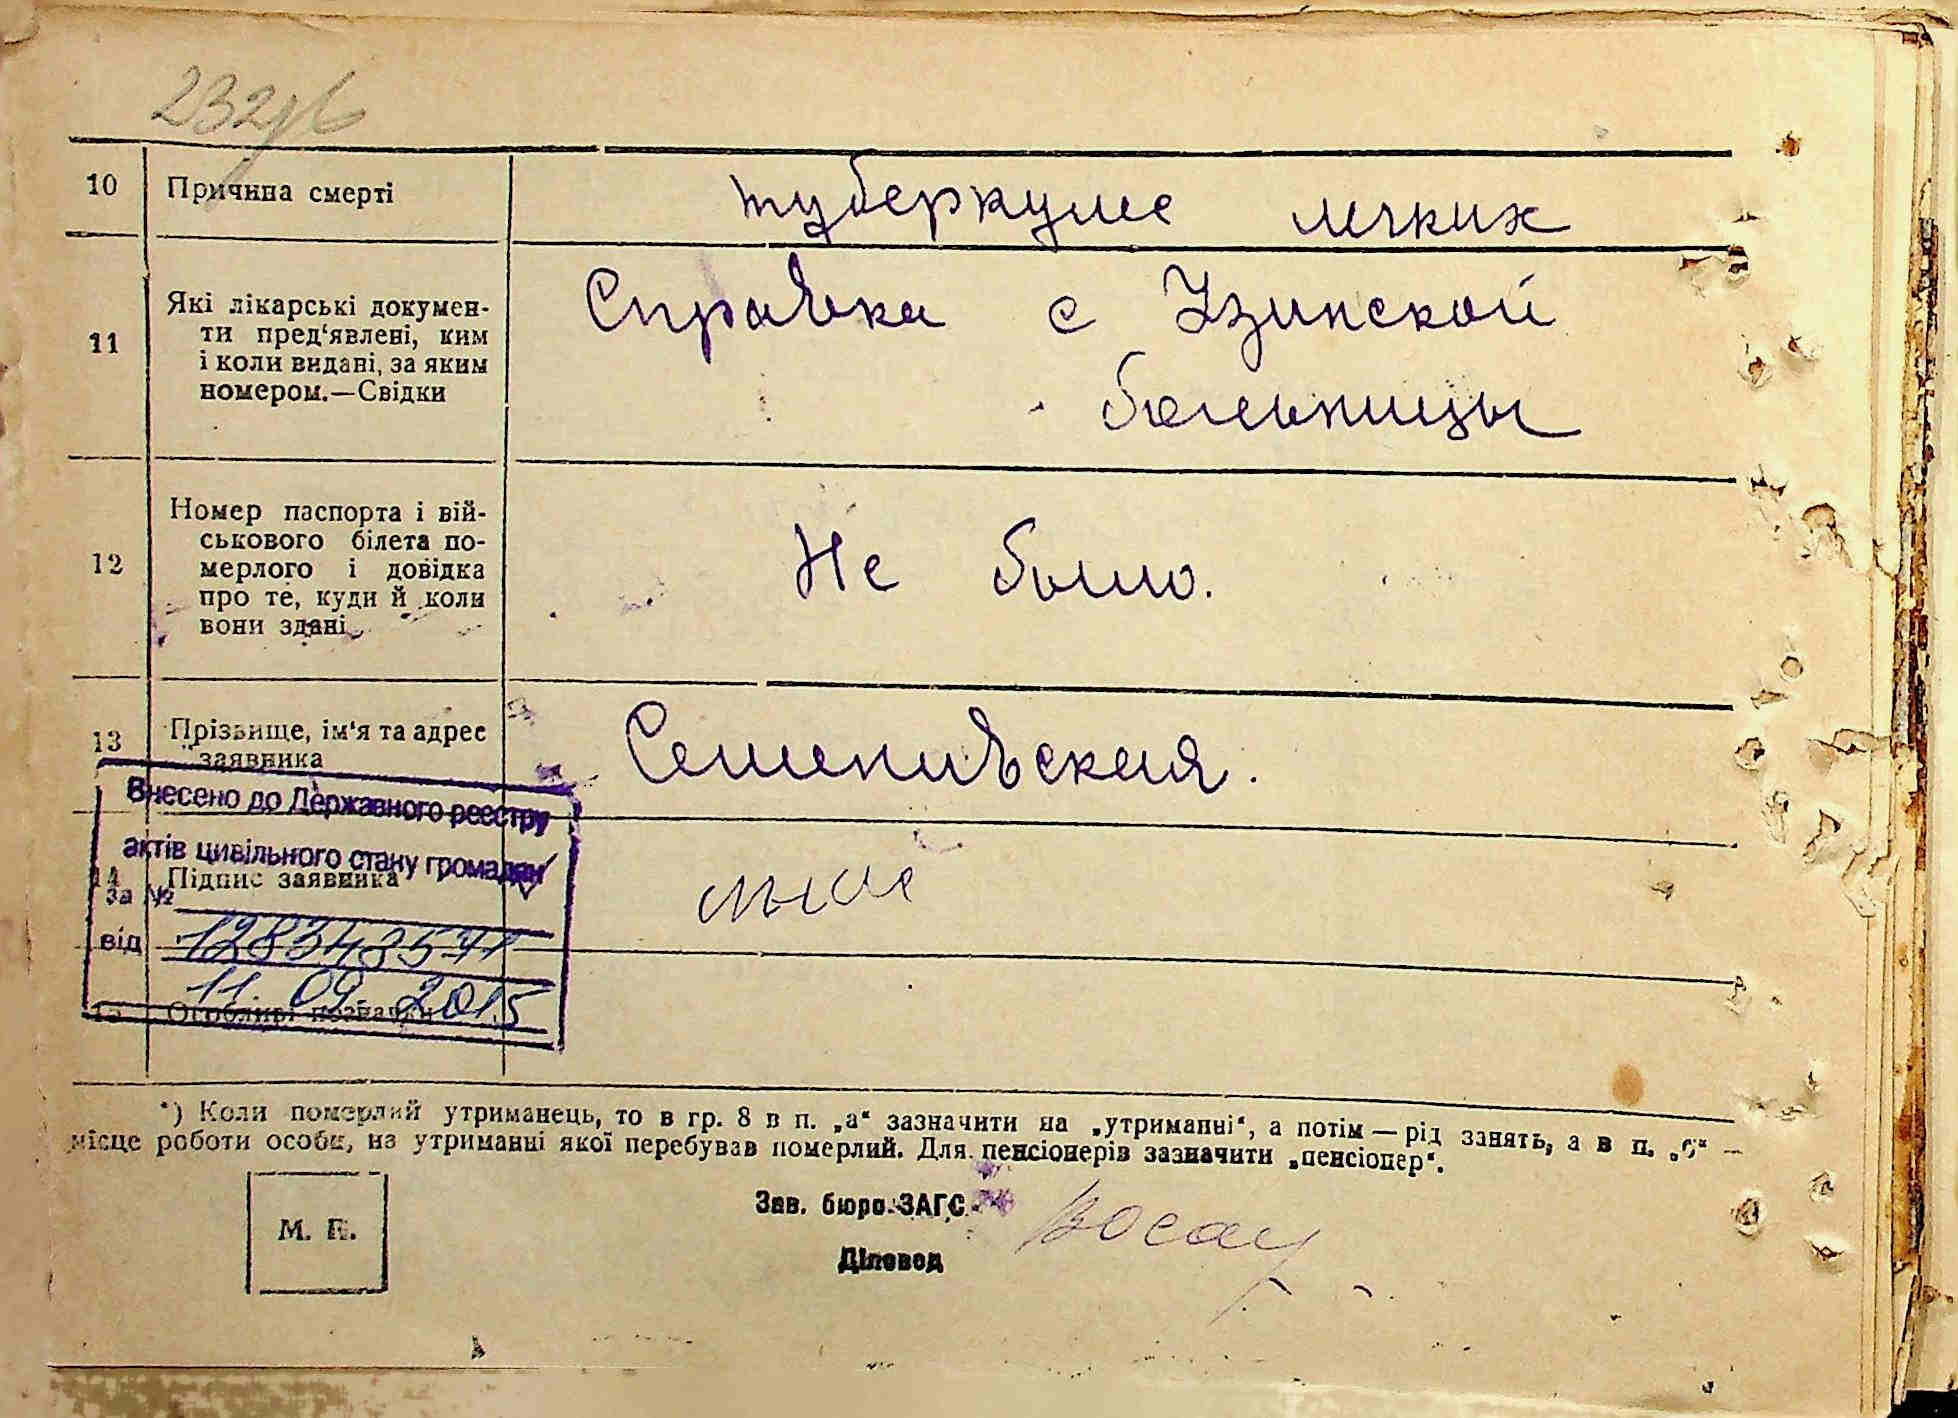 232
10 Причина смерті туберкулес легких
11 Які лікарські докумен-
ти пред'явлені, ким
і коли видані, за яким
номером.—Свідки
Справка с Узинской
больницы
12 Номер паспорта і вій-
ськового білета по-
мерлого і довідка
про те, куди й коли
вони здані
Не было.
13 Прізвище, ім'я та адрес
заявника
Семенивская.
Внесено до Державного реєстру
актів цивільного стану громадян
14 Підпис заявника
за №
128348571
від
11.09.2015
15 Особливі позначки
*) Коли померлий утриманець, то в гр. 8 в п. „а“ зазначити на „утриманні“, а потім — рід занять, а в п. „б“ —
місце роботи особи, на утриманні якої перебував померлий. Для пенсіонерів зазначити „пенсіонер“.
М. П.
Зав. бюро ЗАГС
Діловод